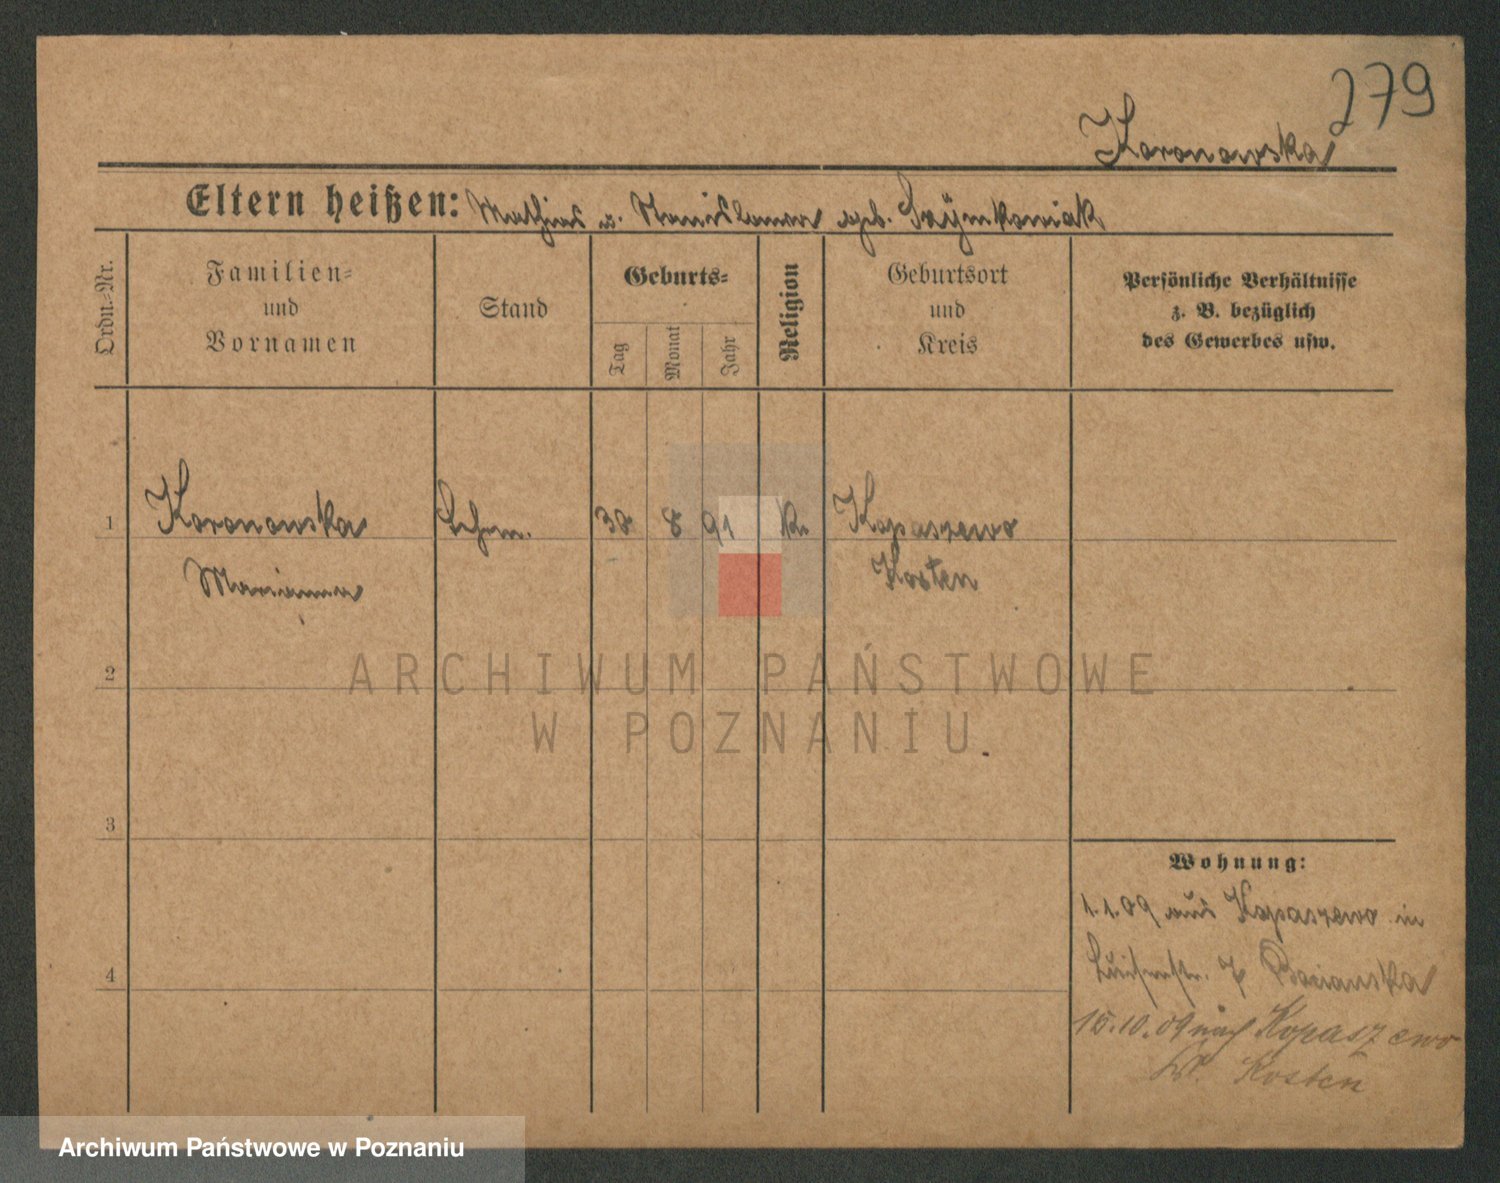 279
Koronowska
Eltern heißen: Mathias u. Stanislawa geb. Szymkowiak
Ordn.-Nr.
Familien-
und
Vornamen
Stand
Geburts-
Tag
Monat
Jahr
Religion
Geburtsort
und
Kreis
Persönliche Verhältnisse
z. B. bezüglich
des Gewerbes usw.
1 Koronowska 30 8 91 k. Kopaszewo
Marianna Kosten
2
3
4
Wohnung:
1.1.09 aus Kopaszewo in
Luisenstr. 7
15.10.09 nach Kopaszewo
Kosten
ARCHIWUM PAŃSTWOWE
W POZNANIU
Archiwum Państwowe w Poznaniu